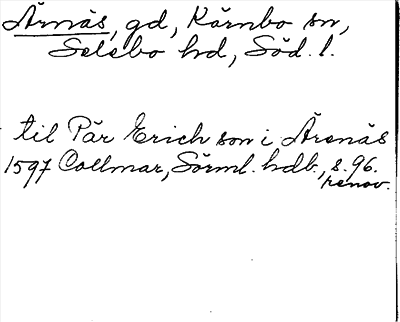 Ärnäs, gd, Kärnbo sn,
Selebo hd, Söd. l.
til Pär Erich son i Ärenäs
1597 Collmar, Sörml. hdb., s. 96.
renov.